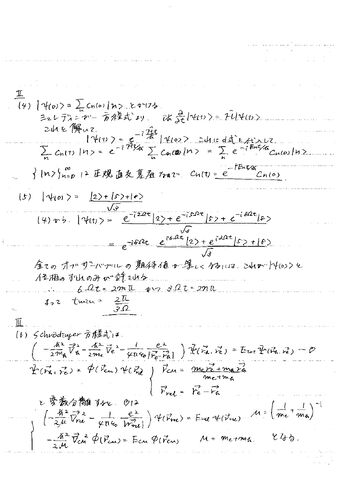 II
(4) |Ψ(0)> = Σ_n Cn(0)|n> とかける
シュレディンガー方程式より、 iħ ∂/∂t |Ψ(t)> = Ĥ|Ψ(t)>
これを解いて
|Ψ(t)> = e^{-iĤt/ħ} |Ψ(0)> これに上式を代入して
Σ_n Cn(t)|n> = e^{-iĤt/ħ} Σ_n Cn(0)|n> = Σ_n e^{-iEnt/ħ} Cn(0)|n>
{|n>}_{n=0}^∞ は正規直交基底なので Cn(t) = e^{-iEnt/ħ} Cn(0)
(5) |Ψ(0)> = (|2>+|5>+|8>)/√3
(4)から |Ψ(t)> = (e^{-i2Ωt}|2> + e^{-i5Ωt}|5> + e^{-i8Ωt}|8>)/√3
= e^{-i8Ωt} (e^{i6Ωt}|2> + e^{i3Ωt}|5> + |8>)/√3
全てのオブザーバブルの期待値が等しくなるには、これが|Ψ(0)>と
位相のずれのみが許される
∴ 6Ωt = 2mπ かつ 3Ωt = 2nπ
よって tmin = 2π/3Ω
III
(1) Schrödinger方程式は
(-ħ²/2m_n ∇_n² - ħ²/2m_e ∇_e² - 1/4πε₀ e²/|r_e-r_n|) Ψ(r_n, r_e) = E_tot Ψ(r_n, r_e) —①
Ψ(r_n, r_e) = Φ(r_cm) Ψ(r_rel) { r_cm = (m_e r_e + m_n r_n)/(m_e + m_n)
r_rel = r_e - r_n
と変数分離すると、①は
{ (-ħ²/2μ ∇² - 1/4πε₀ e²/|r_rel|) Ψ(r_rel) = E_rel Ψ(r_rel) μ = (1/m_e + 1/m_n)^{-1}
-ħ²/2M ∇² Φ(r_cm) = E_cm Φ(r_cm) M = m_e + m_n となる